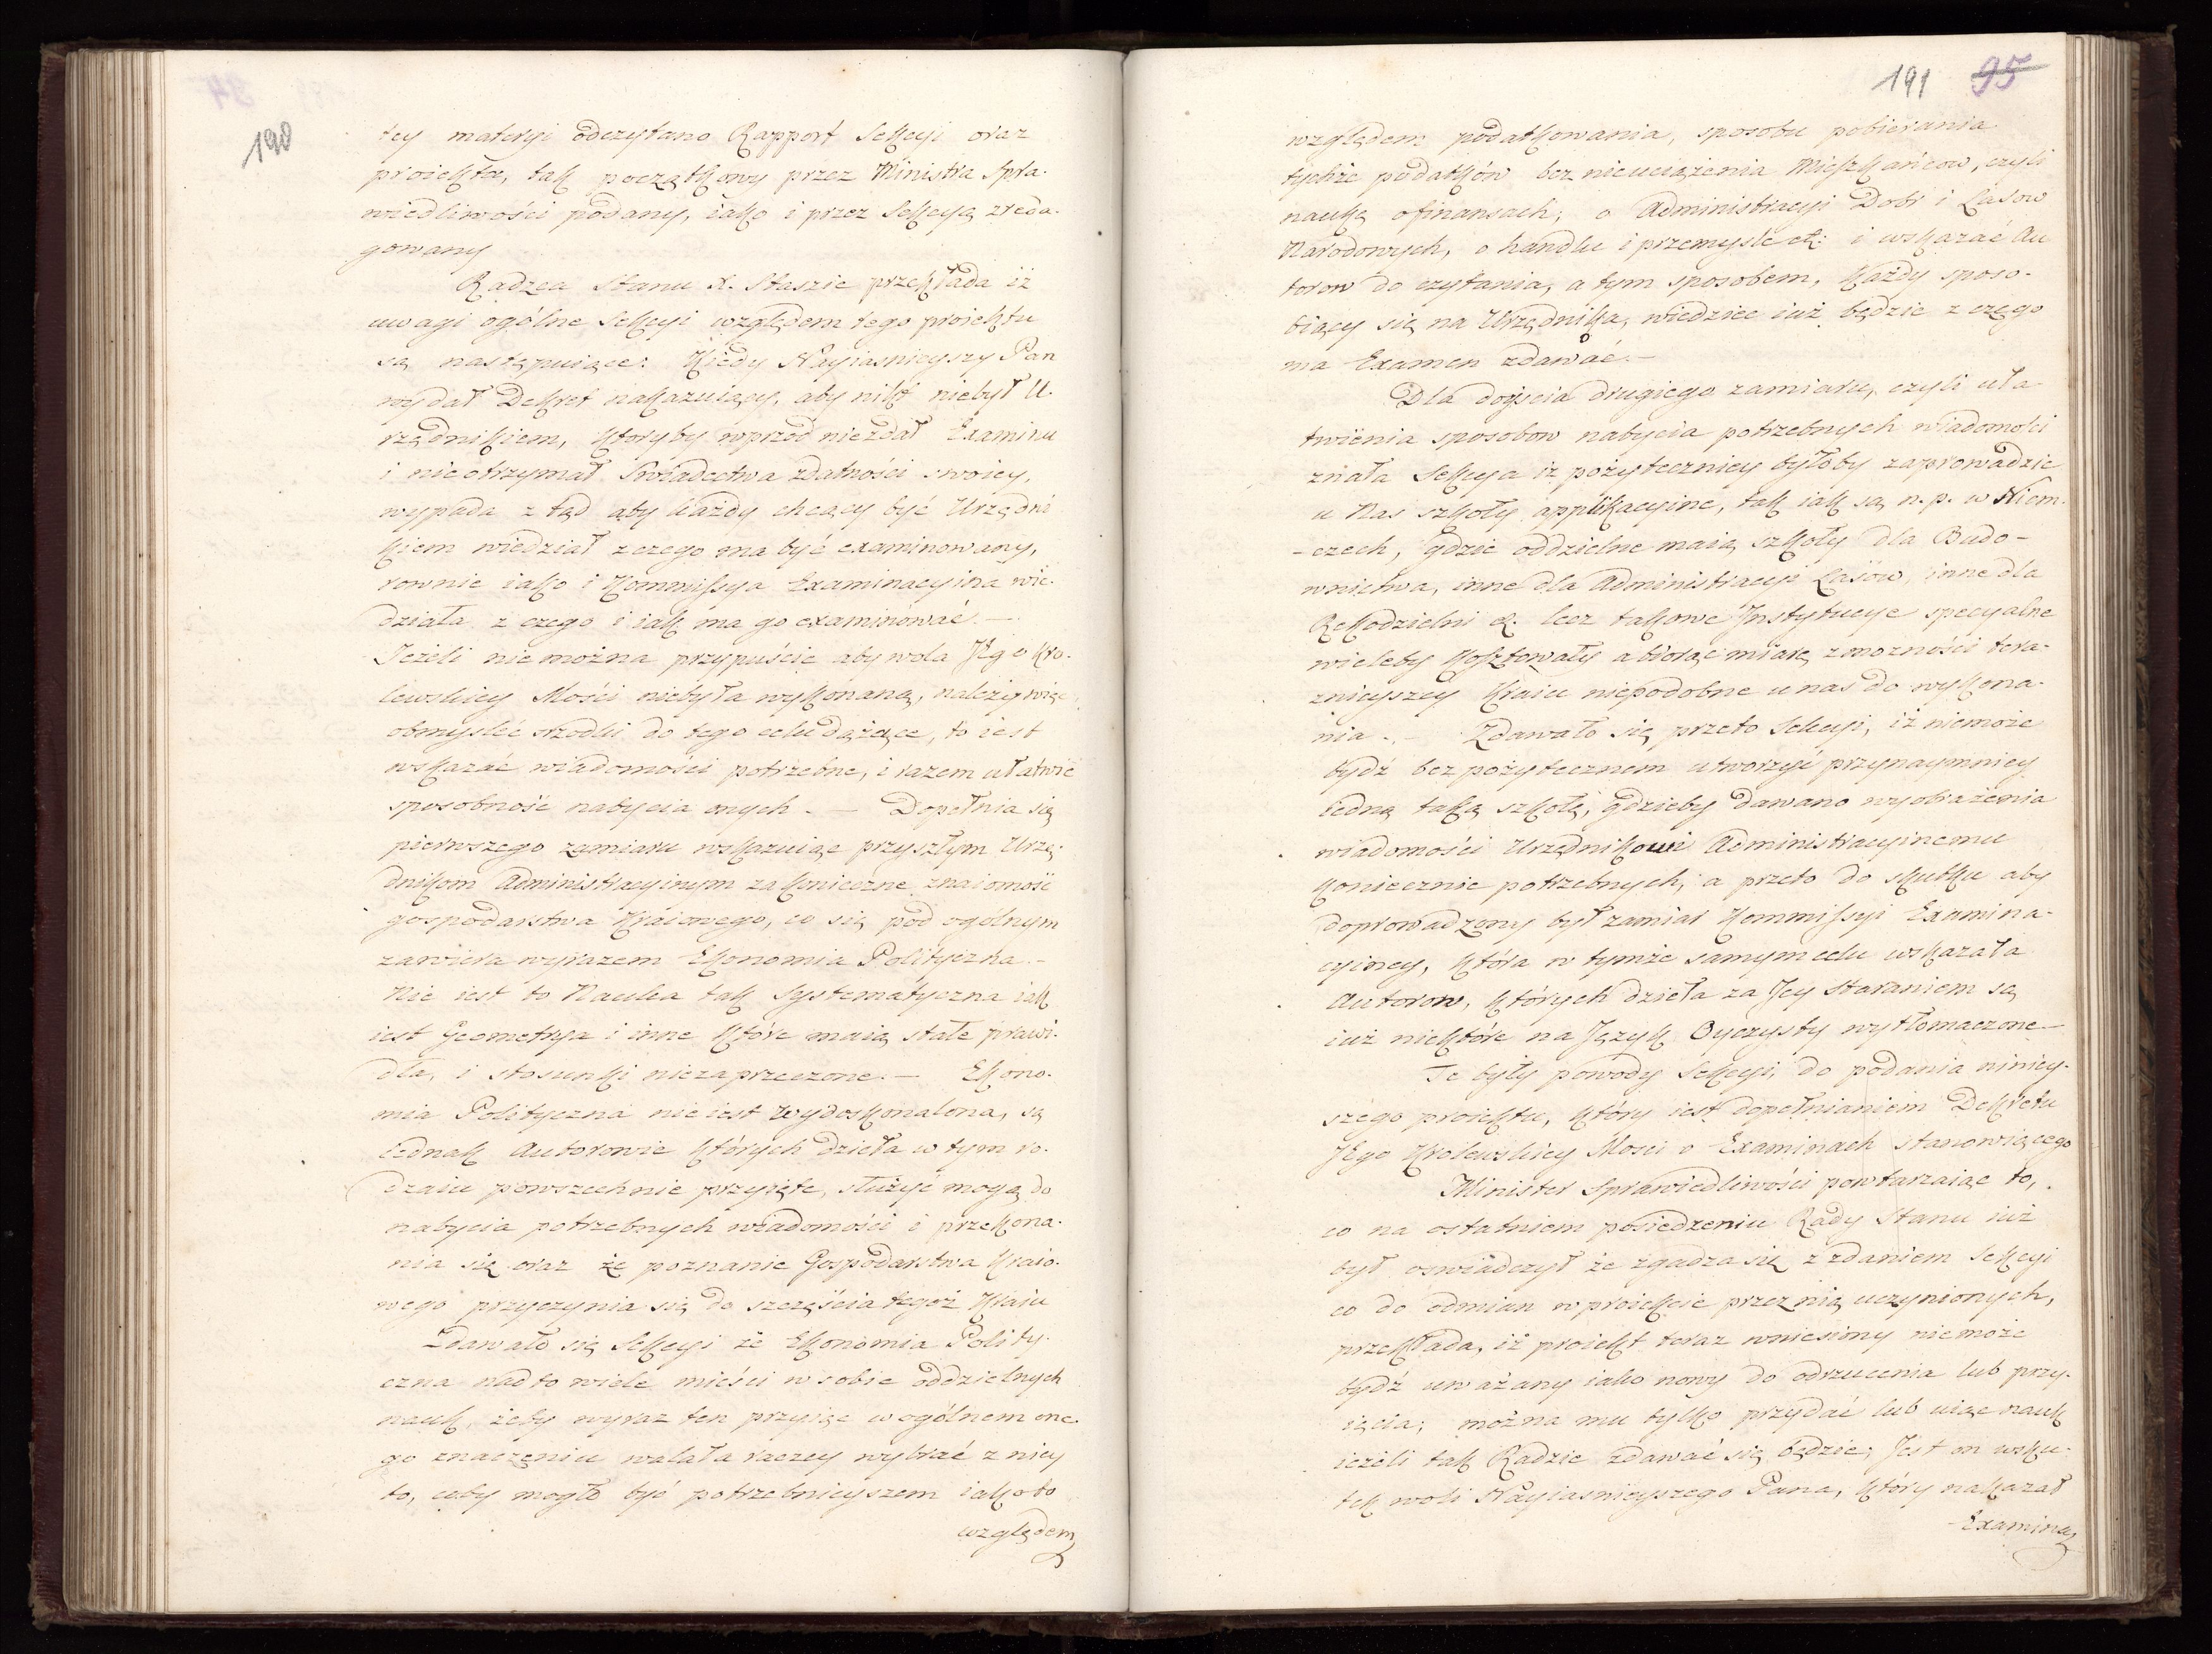 190
tey materyi odczytano Rapport Sekcyi oraz
proiekta, tak początkowy przez Ministra Spra-
wiedliwości podany, iako i przez Sekcyą zreda-
gowany
Radzca Stanu X. Staszic przekłada iż
uwagi ogólne Sekcyi względem tego proiektu
są następuiące: Kiedy Nayiasnieyszy Pan
wydał Dekret nakazuiący, aby nikt niebył U-
rzędnikiem, któryby wprzód niezdał Examinu
i nieotrzymał Świadectwa zdatności swoiey,
wypada z tąd aby każdy chcący być Urzędni
kiem wiedział z czego ma być examinowany,
rownie iako i Kommissya Examinacyina wie-
działa z czego i iak ma go examinować. —
Jeżeli nie można przypuście aby wola Jego Kro-
lewskiey Mości niebyła wykonaną, należy więc
obmyslić srzodki do tego celu dążące, to iest
wskazać wiadomości potrzebne, i razem ułatwić
sposobność nabycia onych. — Dopełnia się
pierwszego zamiaru wskazuiąc przyszłym Urzę-
dnikom Administracyinym za konieczne znaiomość
gospodarstwa Kraiowego, co się pod ogólnym
zawiera wyrazem Ekonomia Polityczna. —
Nie iest to Nauka tak systematyczna iak
iest Geometrya i inne które maią stałe prawi-
dła, i stosunki niezaprzeczone. — Ekono-
mia Polityczna nie iest wydoskonalona, są
iednak Autorowie których dzieła w tym ro-
dzaiu powszechnie przyięte, służyć mogą do
nabycia potrzebnych wiadomości i przekona-
nia się oraz że poznanie Gospodarstwa Kraio-
wego przyczynia się do szczęścia tegoż Kraiu
Zdawało się Sekcyi że Ekonomia Polity-
czna nadto wiele mieści w sobie oddzielnych
nauk, żeby wyraz ten przyiąc w ogólnem one-
go znaczeniu wolała raczey wybrać z niey
to, coby mogło być potrzebnieyszem iakoto
względem
191 95
względem podatkowania, sposobu pobierania
tychże podatków bez nieuciążenia Mieszkańcow, czyli
nauką o finansach; o Administracyi Dobr i Lasow
Narodowych, o handlu i przemysle etc: i wskazać Au
torow do czytania, a tym sposobem, każdy sposo-
biący się na Urzędnika, wiedziec iuż będzie z czego
ma Examen zdawać. —
Dla doyścia drugiego zamiaru, czyli uła
twienia sposobow nabycia potrzebnych wiadomości
znała Sekcya iż pożyteczniey byłoby zaprowadzic
u Nas szkoły applikacyine, tak iak są n. p. w Niem-
-czech, gdzie oddzielne maią szkoły dla Budo-
wnictwa, inne dla Administracyi Lasow, inne dla
Rekodzielni &. lecz takowe Instytucye specyalne
wieleby kosztowały a biorąc miarę z możności tera-
znieyszey Kraiu niepodobne u nas do wykona-
nia. — Zdawało się przeto Sekcyi, iż niemoże
bydź bez pożytecznem utworzyć przynaymniey
iedną taką szkołę, gdzieby dawano wyobrażenia
wiadomości Urzędnikowi Administracyinemu
koniecznie potrzebnych, a przeto do skutku aby
doprowadzony był zamiar Kommissyi Examina-
cyiney, która w tymże samym celu wskazała
Autorow, których dzieła za Jey staraniem są
iuż niektóre na Język Oyczysty wytłomaczone —
Te były powody Sekcyi, do podania niniey-
szego proiektu, który iest dopełnianiem Dekretu
JEgo Królewskiey Mosci o Examinach stanowiącego
Minister Sprawiedliwości powtarzaiąc to,
co na ostatniem posiedzeniu Rady Stanu iuż
był oswiadczył że zgadza się z zdaniem Sekcyi
co do odmian w proiekcie przez nią uczynionych,
przekłada, iż proiekt teraz wniesiony niemoże
bydź uważany iako nowy do odrzucenia lub przy-
ięcia; można mu tylko przydać lub uiąc nauk
ieżeli tak Radzie zdawać się będzie; Jest on wsku-
tek woli Nayiasnieyszego Pana, który nakazał
Examina